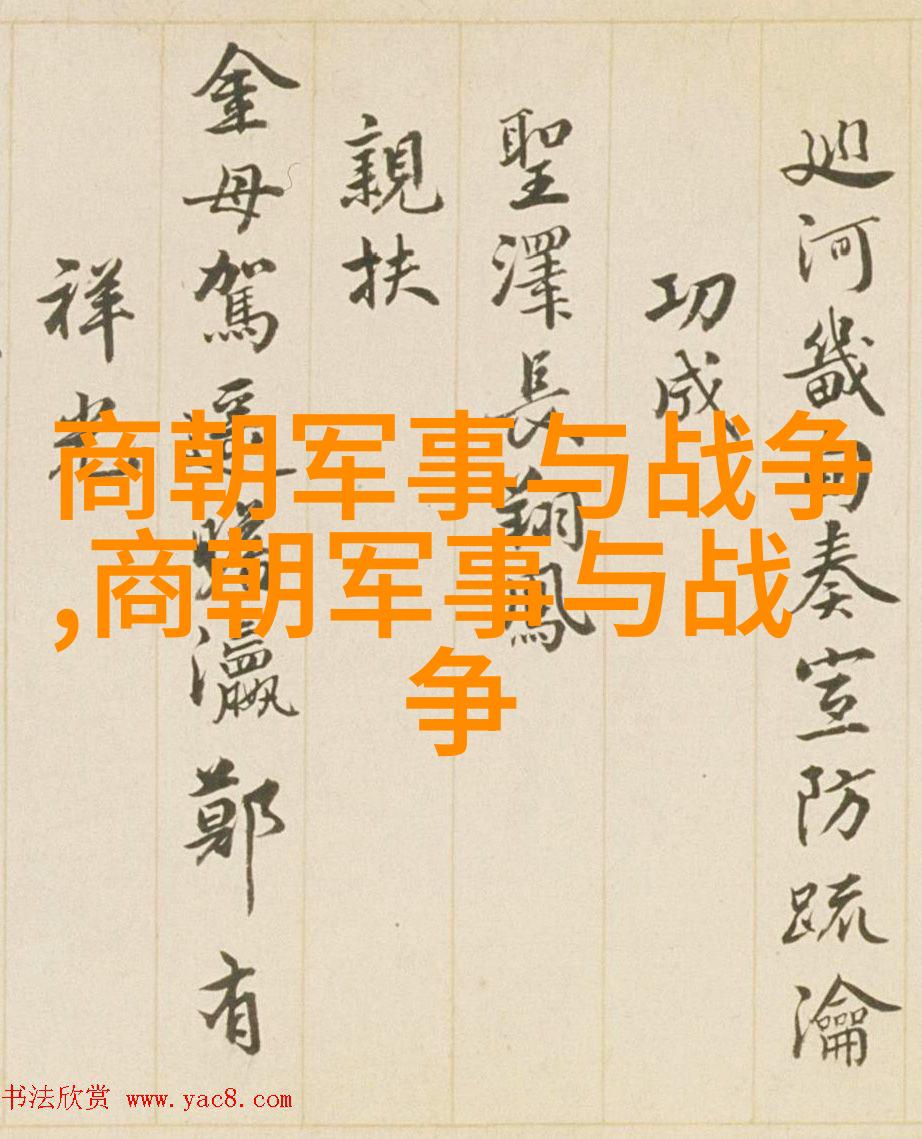 廵河畿奏宣防疏瀹
功成
聖澤長翔鳳
親扶
金母駕瀛鄭有
祥
商朝军事与战争
,商朝军事与战
争
书法欣赏 www.yac8.com